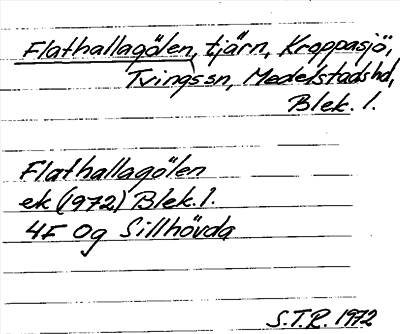 Flathallagölen, tjärn, Kroppasjö,
Tvings sn, Medelstads hd,
Blek. l.
Flathallagölen
ek (1972) Blek. l.
4F 0g Sillhövda
S.T.R. 1972